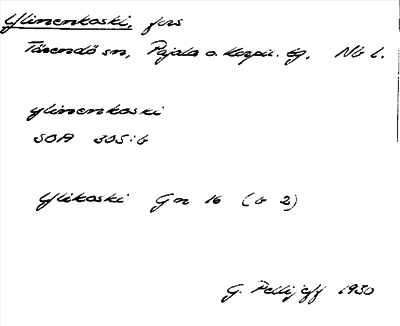 Ylinenkoski, fors
Tärendö sn, Pajala o. Korpil. tg. Nb l.
ylinenkoski
SOA 305:6
Ylikoski Gn 16 (b 2)
G. Pellijeff 1930